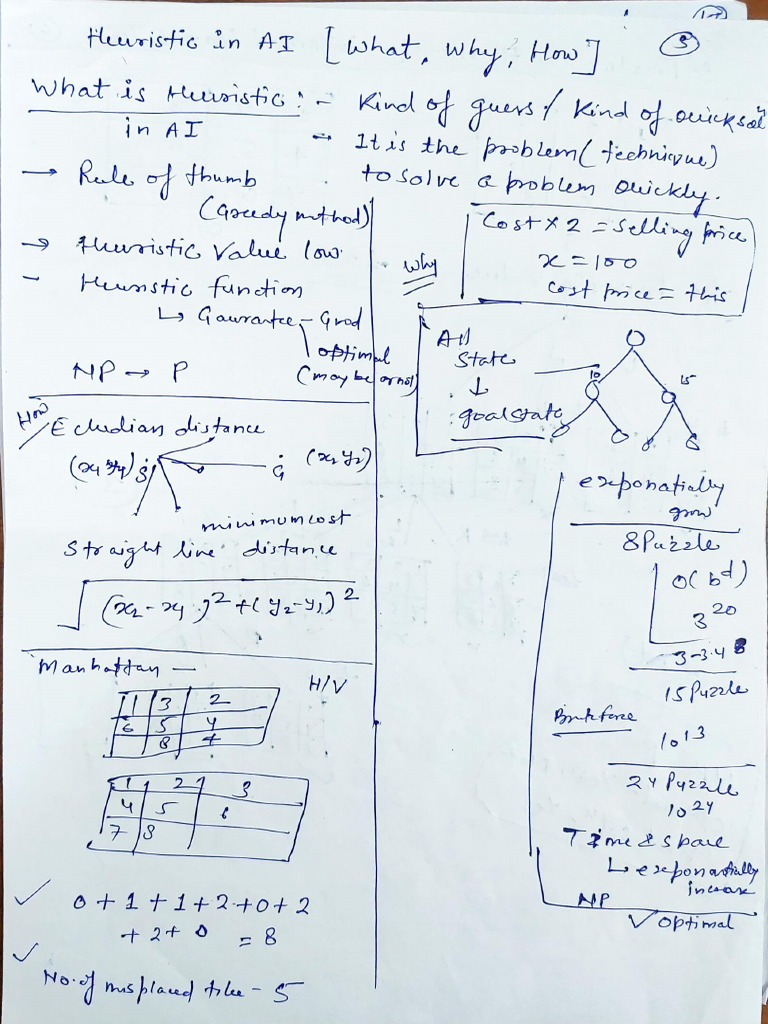 5
Heuristic in AI [What, Why, How]
What is Heuristic :- Kind of guess / Kind of
in AI
- It is the problem (technique)
to solve a problem quickly.
→ Rule of thumb
(Greedy method)
→ Heuristic Value low
- Heuristic function
↳ Gaurantee - Good
optimal
(may be or not)
NP → P
Cost × 2 = Selling price
x = 100
cost price = this
Why
All
State
↓
goal state
10
15
exponatially
grow
8 Puzzle
O(b^d)
3^20
15 Puzzle
Bruteforce
10^13
24 Puzzle
10^24
Time & space
↳ exponantially
increase
NP
✓ optimal
How
Ecludian distance
S G (x2 y2)
minimum cost
Straight line distance
√(x2 - x1)^2 + (y2 - y1)^2
Manhattan — H/V
1 3 2
6 5 4
8 7
1 2 3
4 5 6
7 8
✓ 0 + 1 + 1 + 2 + 0 + 2
+ 2 + 0 = 8
✓ No. of misplaced tile - 5